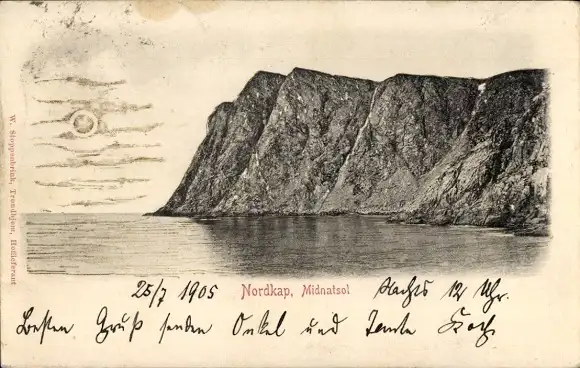 W. Stoppenbrink, Trondhjem, Hoflieferant
25/7 1905 Nordkap, Midnatsol Nachts 12 Uhr.
Besten Gruß senden Onkel und Tante Koch